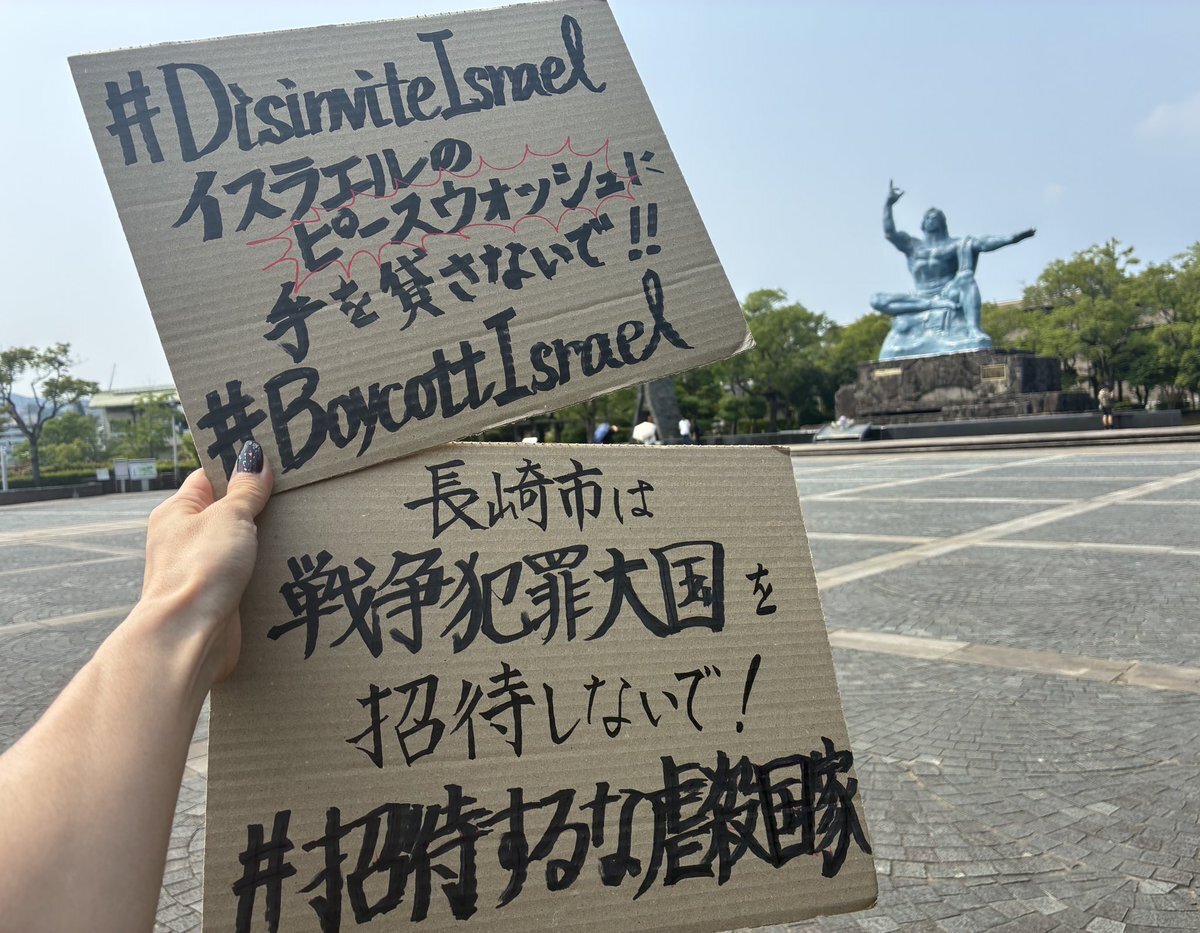 #DisinviteIsrael
イスラエルの
ピースウォッシュに
手を貸さないで!!
#BoycottIsrael
長崎市は
戦争犯罪大国を
招待しないで!
#招待するな虐殺国家